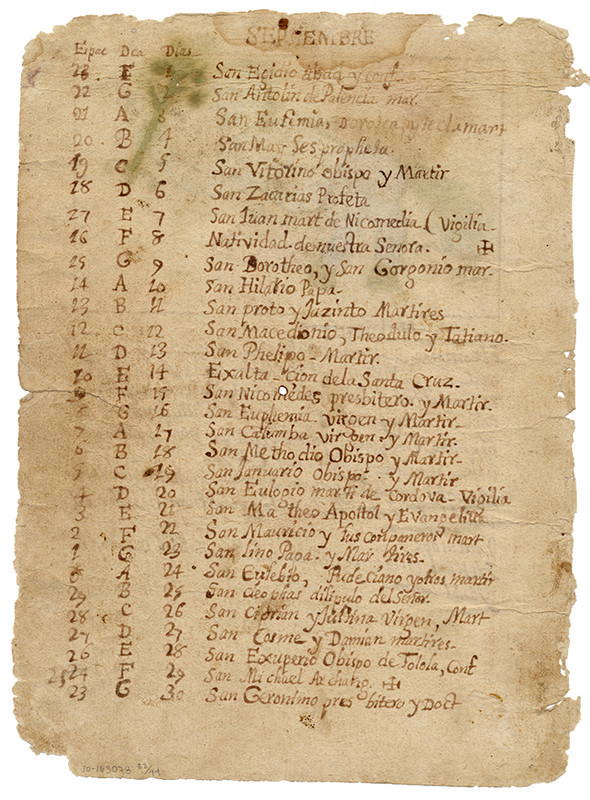 SEPTIEMBRE
Espac Dca Dias
23 F 1 San Egidio Abad y conf.
22 G 2 San Antolin de Palencia mar.
21 A 3 San Eufimia, Dorotea, y tecla mart
20 B 4 San Moy Ses propheta.
19 C 5 San Vitorino obispo y Martir
18 D 6 San Zacarias Profeta
27 E 7 San Juan mart de Nicomedia ( Vigilia
16 F 8 Natividad de nuestra Senora. ✠
15 G 9 San Dorotheo, y San Gorgonio mar.
14 A 10 San Hilario Papa-
13 B 11 San proto y Jazinto Martires
12 C 12 San Macedonio, Theodulo y Tatiano.
11 D 13 San Phelipo - Martir.
10 E 14 Eixalta - cion de la Santa Cruz.
F 15 San Nicomedes presbitero. y Martir.
G 16 San Euphemia virgen y Martir-
7 A 17 San Calumba virgen y Martir-
6 B 18 San Methodio Obispo y Martir-
5 C 19 San Januario Obispo- y Martir
4 D 20 San Eulogio martir de Cordova - Vigilia
3 E 21 San Ma theo Apostol y Evangelista
2 F 22 San Mauricio y sus companeros mart
1 G 23 San lino Papa. y Mar tires-
A 24 San Eusebio, y otros martir
29 B 25 San Cleophas disipulo del Señor.
28 C 26 San Ciprian y Justina Virgen, Mart
27 D 27 San Cosme y Damian martires-
26 E 28 San Exuperio Obispo de Tolosa, Conf
25 24 F 29 San Michael Archangel ✠
23 G 30 San Geronimo pres bitero y Doct
10-163073 33/44